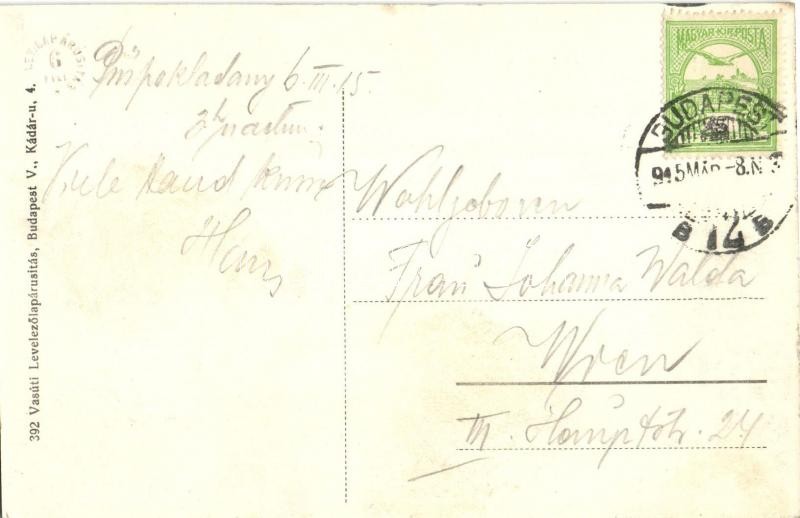 392 Vasúti Levelezőlapárusitás, Budapest V., Kádár-u, 4.
6
Püspokladany 6. III. 15.
Viele Hand
Hans
MAGYAR·KIR·POSTA
BUDAPEST
915 MÁR -8. N
B 14 B
Wohlgeboren
Frau Johanna Walda
Wien
III. Hauptstr. 24